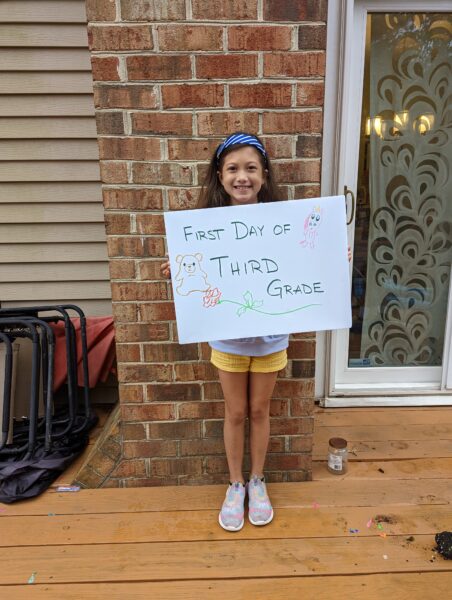 First Day of
Third
Grade